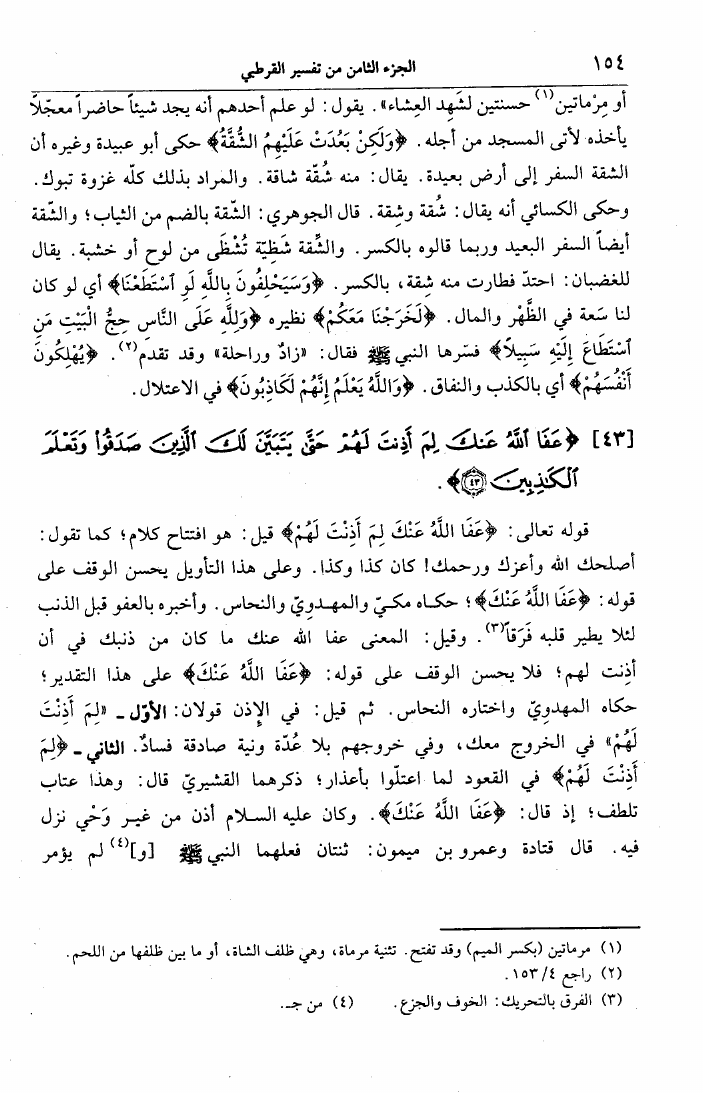 ١٥٤
الجزء الثامن من تفسير القرطبي
أو مِرْماتين(١) حسنتين لشَهِد العِشاء». يقول: لو علم أحدهم أنه يجد شيئاً حاضراً معجّلاً
يأخذه لأتى المسجد من أجله. ﴿وَلَكِنْ بَعُدَتْ عَلَيْهِمُ الشُّقَّةُ﴾ حكى أبو عبيدة وغيره أن
الشقة السفر إلى أرض بعيدة. يقال: منه شُقّة شاقة. والمراد بذلك كلّه غزوة تبوك.
وحكى الكسائي أنه يقال: شُقة وشِقة. قال الجوهري: الشّقة بالضم من الثياب؛ والشّقة
أيضاً السفر البعيد وربما قالوه بالكسر. والشِّقة شَظِيّة تُشْظَى من لوح أو خشبة. يقال
للغضبان: احتدّ فطارت منه شِقة، بالكسر. ﴿وَسَيَحْلِفُونَ بِاللَّهِ لَوِ ٱسْتَطَعْنَا﴾ أي لو كان
لنا سَعة في الظَّهْر والمال. ﴿لَخَرَجْنَا مَعَكُمْ﴾ نظيره ﴿وَلِلَّهِ عَلَى النَّاسِ حِجُّ الْبَيْتِ مَنِ
ٱسْتَطَاعَ إِلَيْهِ سَبِيلاً﴾ فسّرها النبي ﷺ فقال: «زادٌ وراحلة» وقد تقدم(٢). ﴿يُهْلِكُونَ
أَنْفُسَهُمْ﴾ أي بالكذب والنفاق. ﴿وَاللَّهُ يَعْلَمُ إِنَّهُمْ لَكَاذِبُونَ﴾ في الاعتلال.
[٤٣] ﴿عَفَا ٱللَّهُ عَنكَ لِمَ أَذِنتَ لَهُمْ حَتَّىٰ يَتَبَيَّنَ لَكَ ٱلَّذِينَ صَدَقُواْ وَتَعْلَمَ
ٱلْكَٰذِبِينَ ٤٣﴾.
قوله تعالى: ﴿عَفَا اللَّهُ عَنْكَ لِمَ أَذِنْتَ لَهُمْ﴾ قيل: هو افتتاح كلام؛ كما تقول:
أصلحك الله وأعزك ورحمك! كان كذا وكذا. وعلى هذا التأويل يحسن الوقف على
قوله: ﴿عَفَا اللَّهُ عَنْكَ﴾؛ حكاه مكيّ والمهدويّ والنحاس. وأخبره بالعفو قبل الذنب
لئلا يطير قلبه فَرَقاً(٣). وقيل: المعنى عفا الله عنك ما كان من ذنبك في أن
أذِنت لهم؛ فلا يحسن الوقف على قوله: ﴿عَفَا اللَّهُ عَنْكَ﴾ على هذا التقدير؛
حكاه المهدويّ واختاره النحاس. ثم قيل: في الإذن قولان: الأوّل ـ «لِمَ أَذِنْتَ
لَهُمْ» في الخروج معك، وفي خروجهم بلا عُدّة ونية صادقة فسادٌ. الثاني ـ ﴿لِمَ
أَذِنْتَ لَهُمْ﴾ في القعود لما اعتلّوا بأعذار؛ ذكرهما القشيريّ قال: وهذا عتاب
تلطف؛ إذ قال: ﴿عَفَا اللَّهُ عَنْكَ﴾. وكان عليه السلام أذن من غير وَحْي نزل
فيه. قال قتادة وعمرو بن ميمون: ثنتان فعلهما النبي ﷺ [و](٤) لم يؤمر
(١) مرماتين (بكسر الميم) وقد تفتح. تثنية مرماة، وهي ظلف الشاة، أو ما بين ظلفها من اللحم.
(٢) راجع ٤/ ١٥٣.
(٣) الفرق بالتحريك: الخوف والجزع. (٤) من جـ.